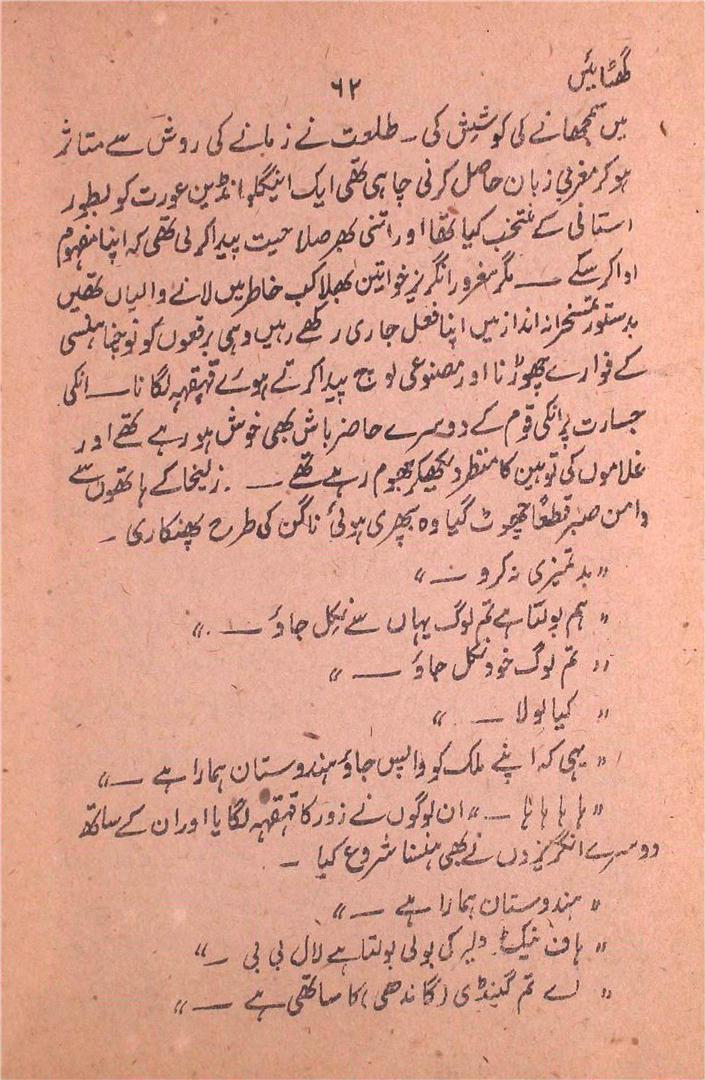 گھٹائیں
۶۲
میں سمجھانے کی کوشش کی۔ طلعت نے زمانے کی روش سے متاثر
ہوکر مغربی زبان حاصل کرنی چاہی تھی ایک اینگلو انڈین عورت کو بطور
استانی کے منتخب کیا تھا اور اتنی بھر صلاحیت پیدا کر لی تھی کہ اپنا مفہوم
ادا کر سکے ـــ مگر مغرور انگریز خواتین بھلا کب خاطر میں لانے والیاں تھیں
بدستور تمسخرانہ انداز میں اپنا فعل جاری رکھے رہیں وہی برقعوں کو نوچنا ہنسی
کے فوارے چھوڑنا اور مصنوعی لوچ پیدا کرتے ہوئے قہقہہ لگانا ـــ انکی
جسارت پر انکی قوم کے دوسرے حاضر باش بھی خوش ہو رہے تھے اور
غلاموں کی توہین کا منظر دیکھکر جھوم رہے تھے ـــ . زلیخا کے ہاتھوں سے
دامن صبر قطعاً چھوٹ گیا وہ بپھری ہوئی ناگن کی طرح پھنکاری ۔
" بدتمیزی نہ کرو ـــ "
" ہم بولتا ہے تم لوگ یہاں سے نکل جاؤ ـــ . "
" تم لوگ خود نکل جاؤ ـــ "
" کیا بولا ـــ . "
" یہی کہ اپنے ملک کو واپس جاؤ ہندوستان ہمارا ہے ـــ "
" ہا ہا ہا ہا ـــ " ان لوگوں نے زور کا قہقہہ لگایا اور ان کے ساتھ
دوسرے انگریزوں نے بھی ہنسنا شروع کیا ۔
" ہندوستان ہمارا ہے ـــ "
" ہاف نیکڈ. دلیر کی بولی بولتا ہے لال بی بی ـــ "
" اے تم گینڈی (گاندھی) کا ساتھی ہے ـــ "